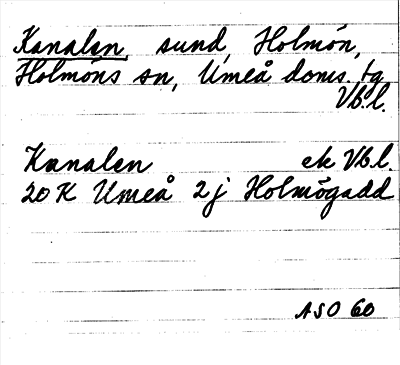 Kanalen, sund, Holmön,
Holmöns sn, Umeå doms. tg
Vb.l.
Kanalen ek Vb.l.
20 K Umeå 2 j Holmögadd
ASO 60